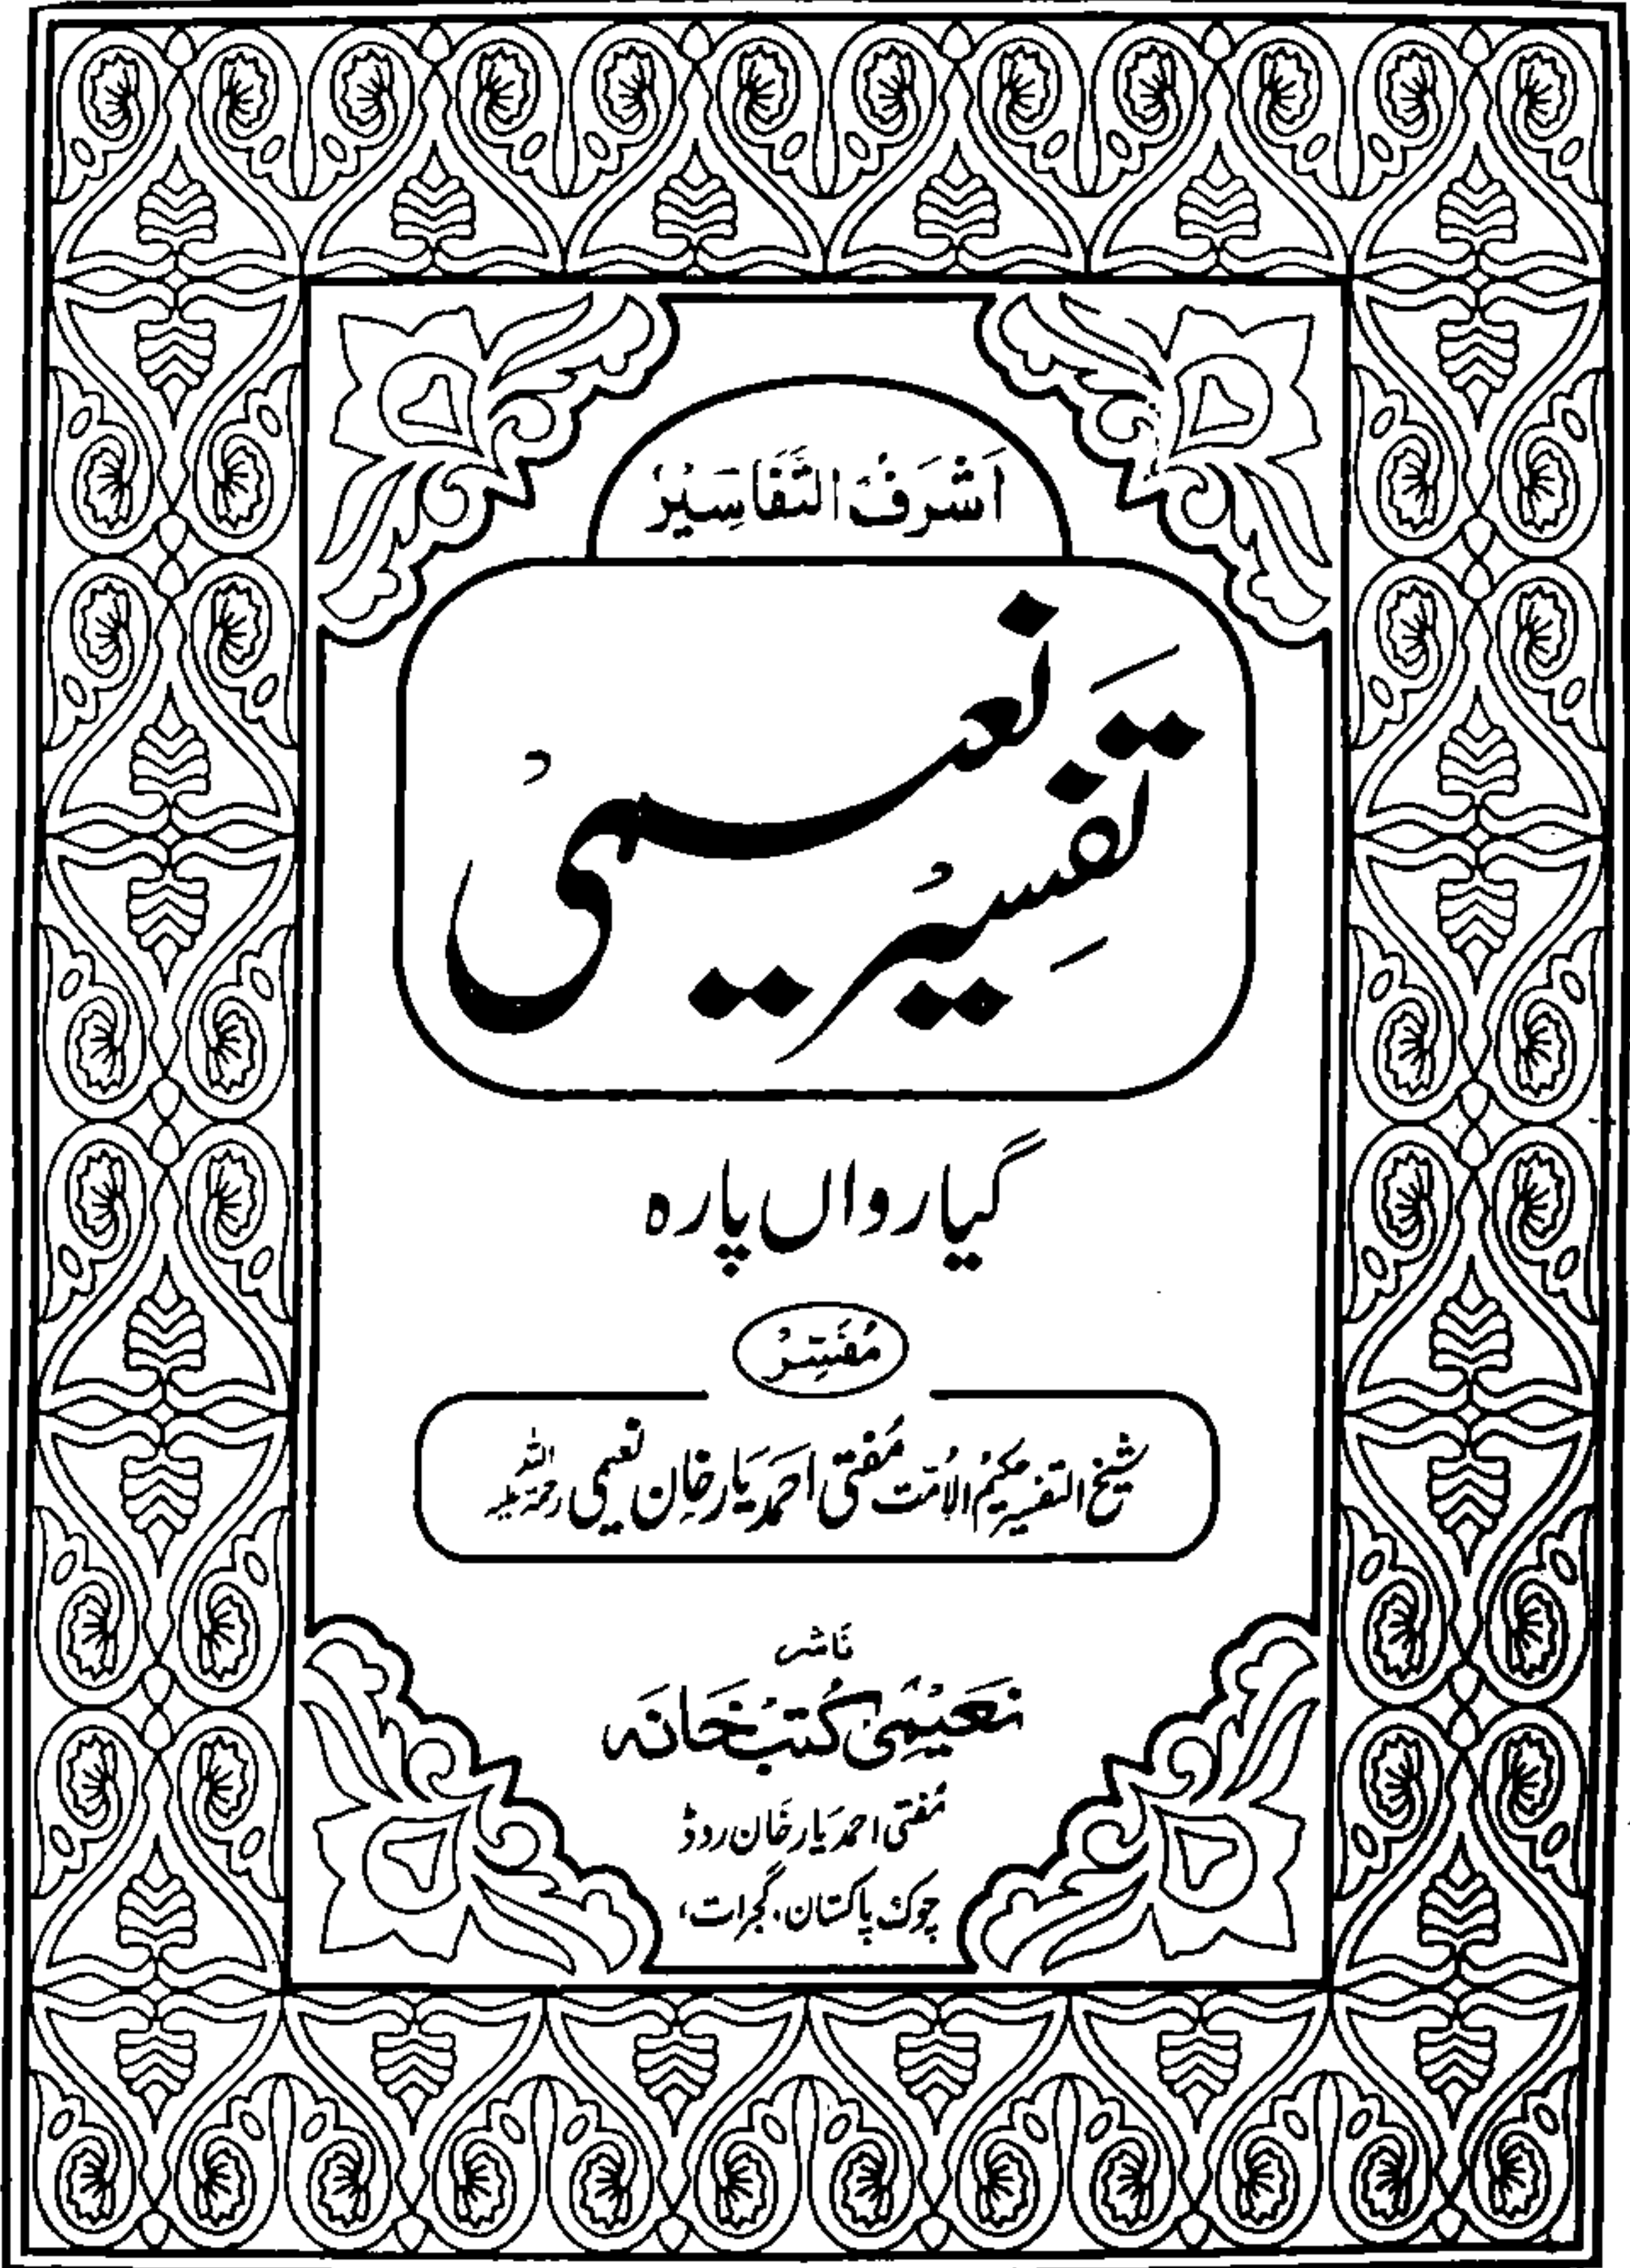 اَشْرَفُ التَّفَاسِیْرُ
تَفسِیْر نعیمیْ
گیارواں پارہ
مُفَسِّرُ
شیخ التفسیر حکیمُ الاُمّت مُفتی احمَد یَار خان نعیمی رحمۃ اللہ علیہ
نَاشر
نَعَیْمِیْ کُتبْ خَانَہ
مُفتی احمد یَار خَان روڈ
چوک پاکستان، گجرات،